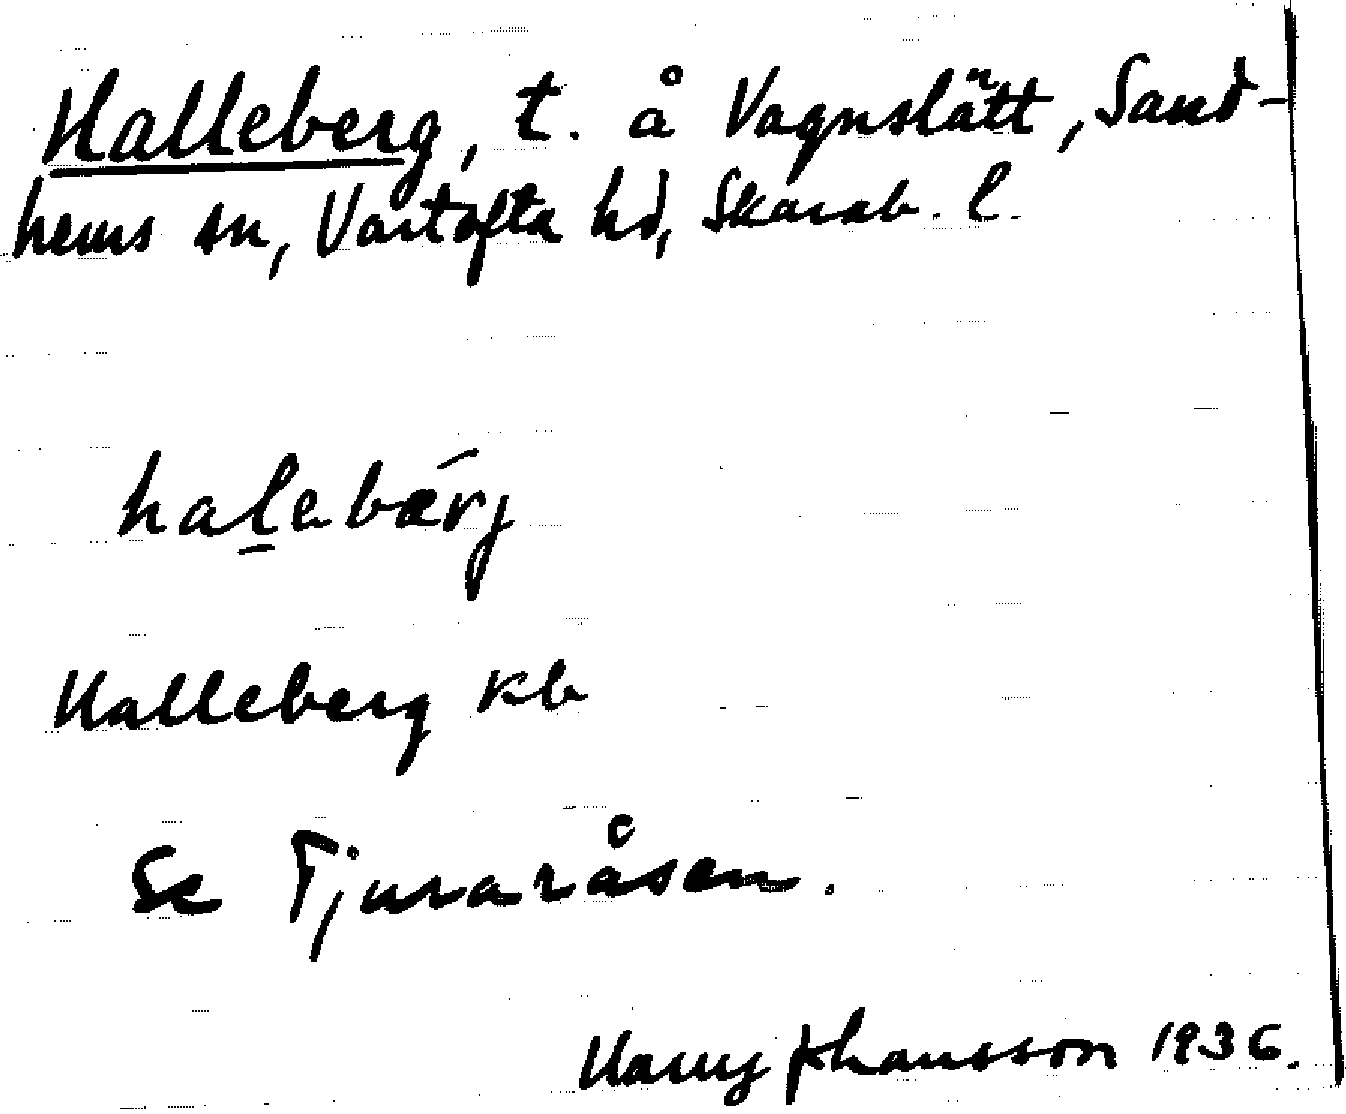 Halleberg, t. å Vagnslätt, Sand-
hems sn, Vartofta hd, Skarab. l.
halebærj
Halleberg kb
Se Tjuraråsen.
Harry Johansson 1936.